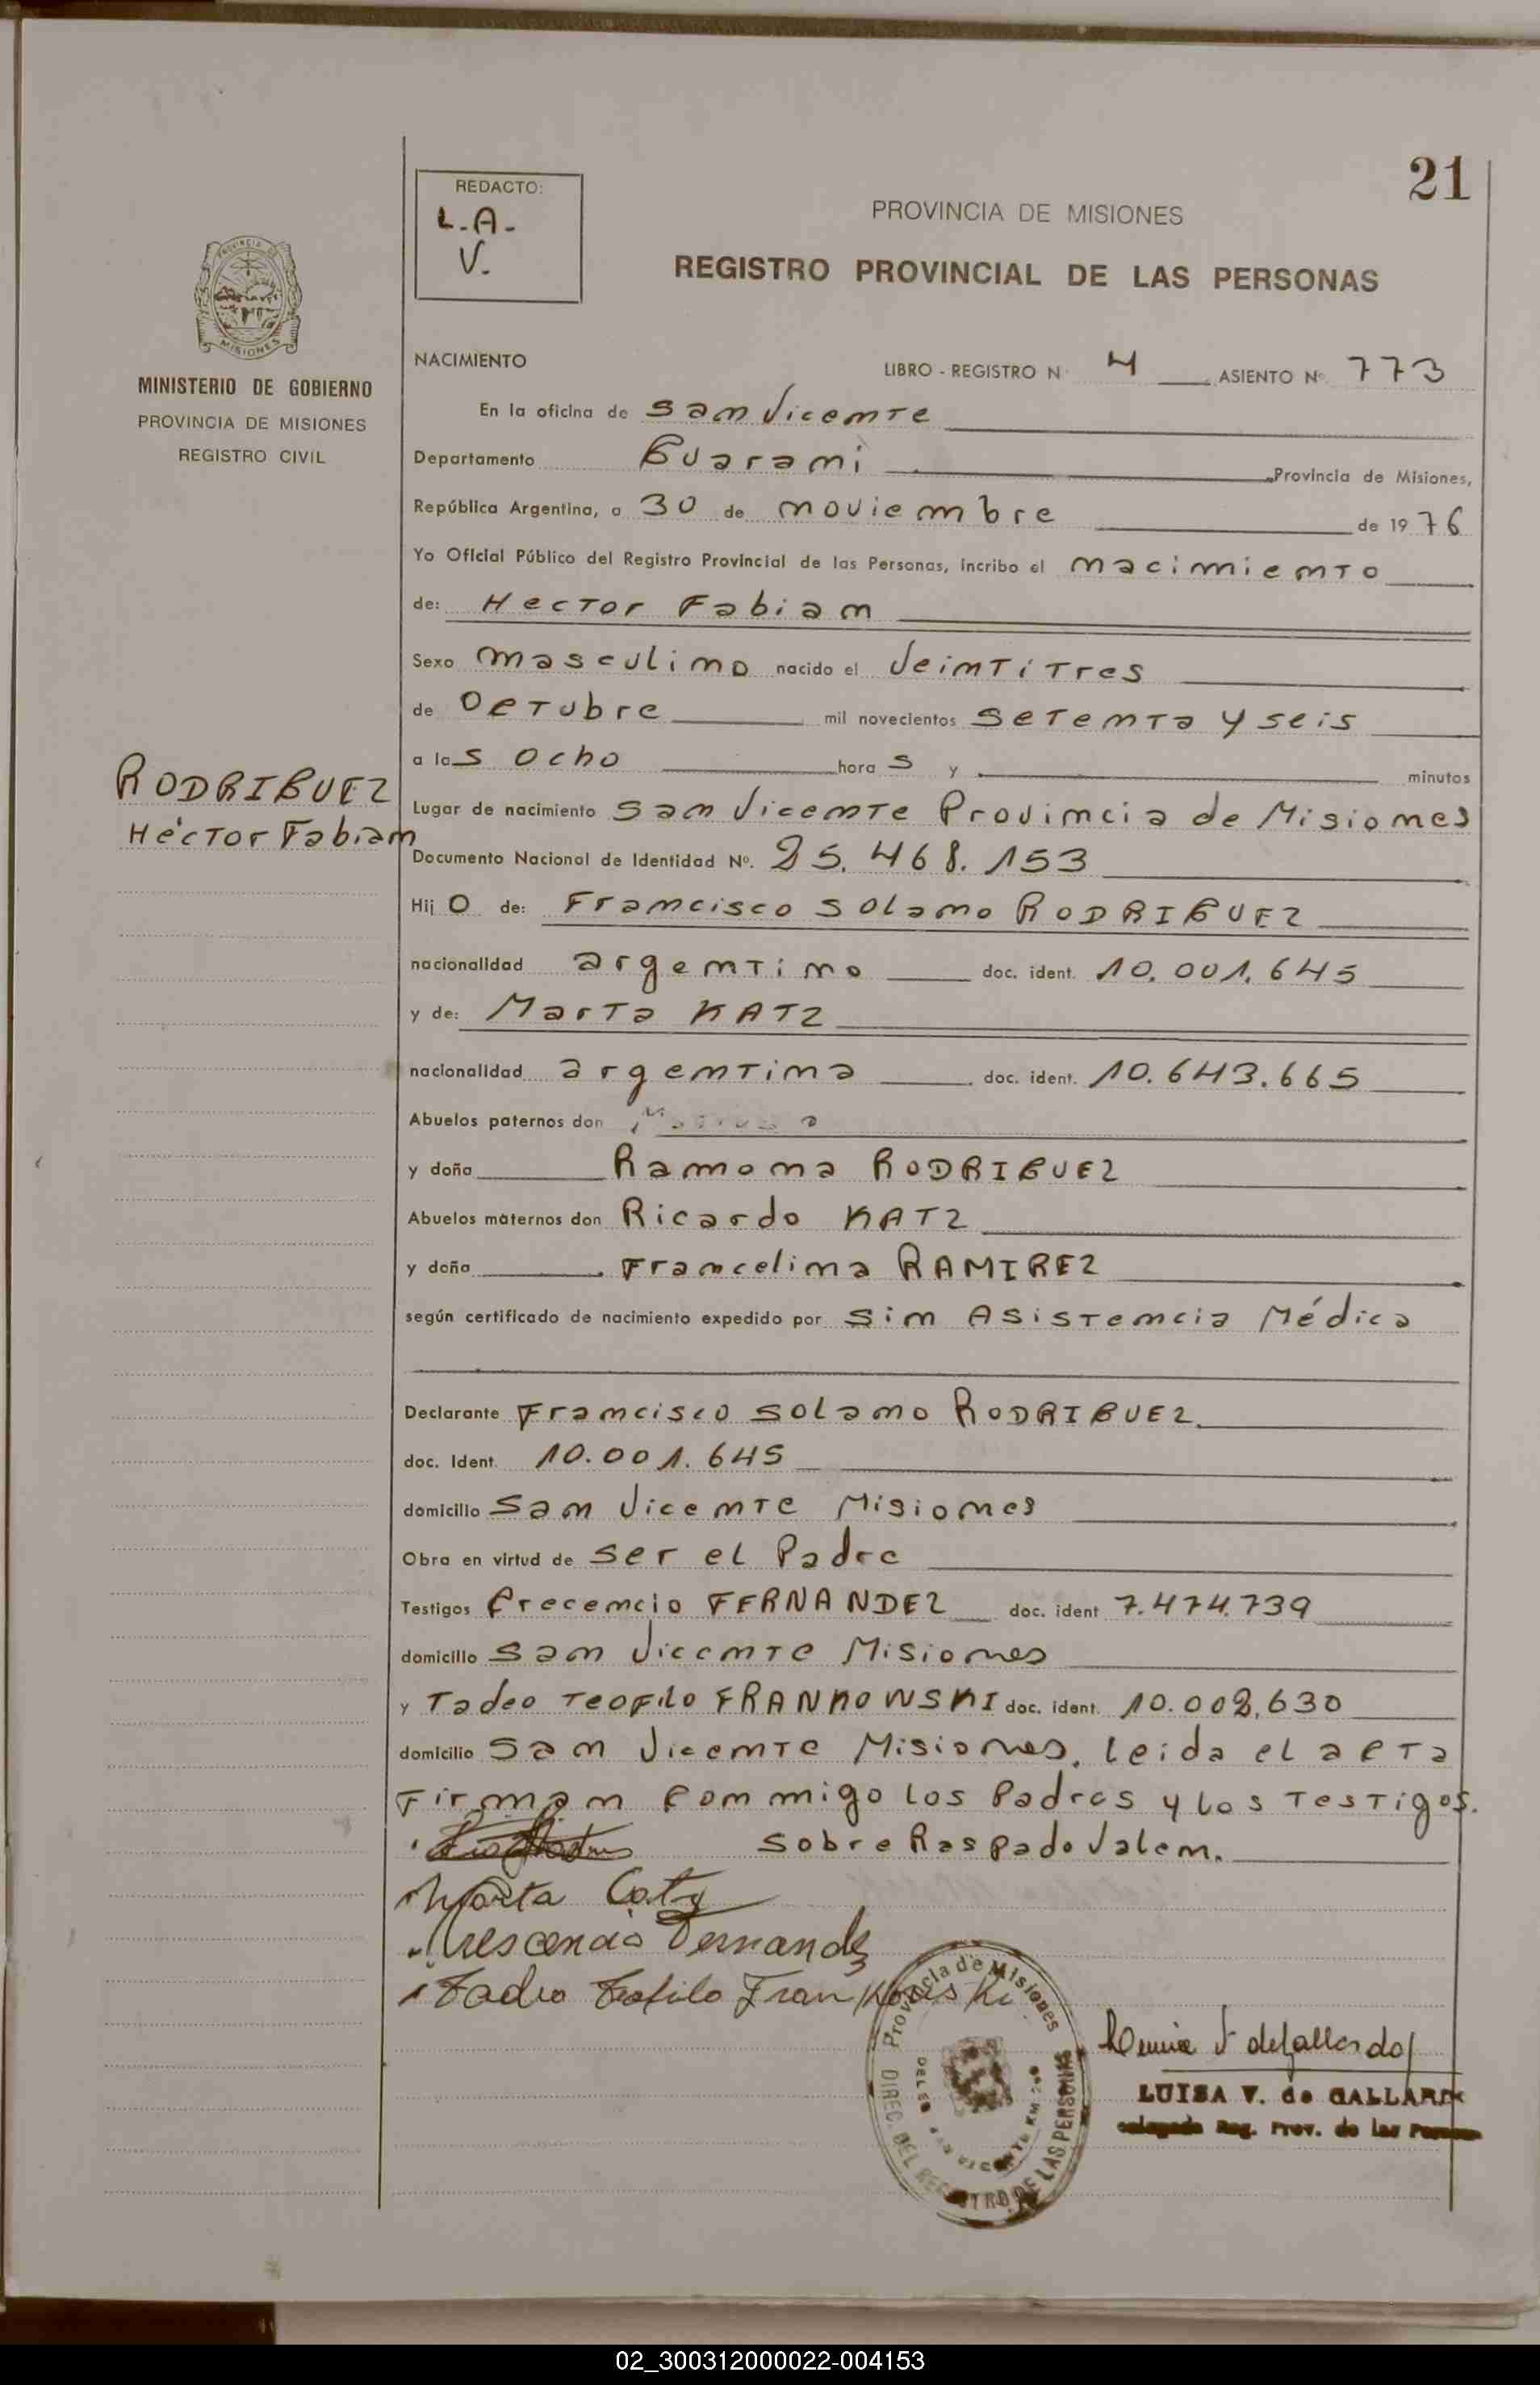 21
REDACTO:
L.A.
V.
PROVINCIA DE MISIONES
REGISTRO PROVINCIAL DE LAS PERSONAS
PROVINCIA DE
MISIONES
MINISTERIO DE GOBIERNO
PROVINCIA DE MISIONES
REGISTRO CIVIL
NACIMIENTO LIBRO - REGISTRO N° 4 ASIENTO N° 773
En la oficina de San Vicente
Departamento Guarani Provincia de Misiones,
República Argentina, a 30 de noviembre de 1976
Yo Oficial Público del Registro Provincial de las Personas, incribo el nacimiento
de: Hector Fabian
Sexo masculino nacido el Veintitres
de Octubre mil novecientos setenta y seis
a las ocho horas y minutos
RODRIGUEZ
Héctor Fabian
Lugar de nacimiento San Vicente Provincia de Misiones
Documento Nacional de Identidad N°. 25.468.153
Hijo de: Francisco Solano RODRIGUEZ
nacionalidad argentino doc. ident. 10.001.645
y de: Marta KATZ
nacionalidad argentina doc. ident. 10.643.665
Abuelos paternos don
y doña Ramona RODRIGUEZ
Abuelos maternos don Ricardo KATZ
y doña Francelina RAMIREZ
según certificado de nacimiento expedido por Sin Asistencia Médica
Declarante Francisco Solano RODRIGUEZ
doc. Ident. 10.001.645
domicilio San Vicente Misiones
Obra en virtud de ser el Padre
Testigos Crecencio FERNANDEZ doc. ident 7.474.739
domicilio San Vicente Misiones
y Tadeo Teofilo FRANKOWSKI doc. ident. 10.002.630
domicilio San Vicente Misiones. Leida el acta
Firman conmigo los Padres y los Testigos.
Sobre Raspado Valen.
Marta Catz
Crescencio Fernandez
Tadeo Teofilo Frankowski
Provincia de Misiones
DIREC. DEL REGISTRO DE LAS PERSONAS
V de Gallardo
LUISA V. de GALLARDO
Delegada Reg. Prov. de las Personas
02_300312000022-004153